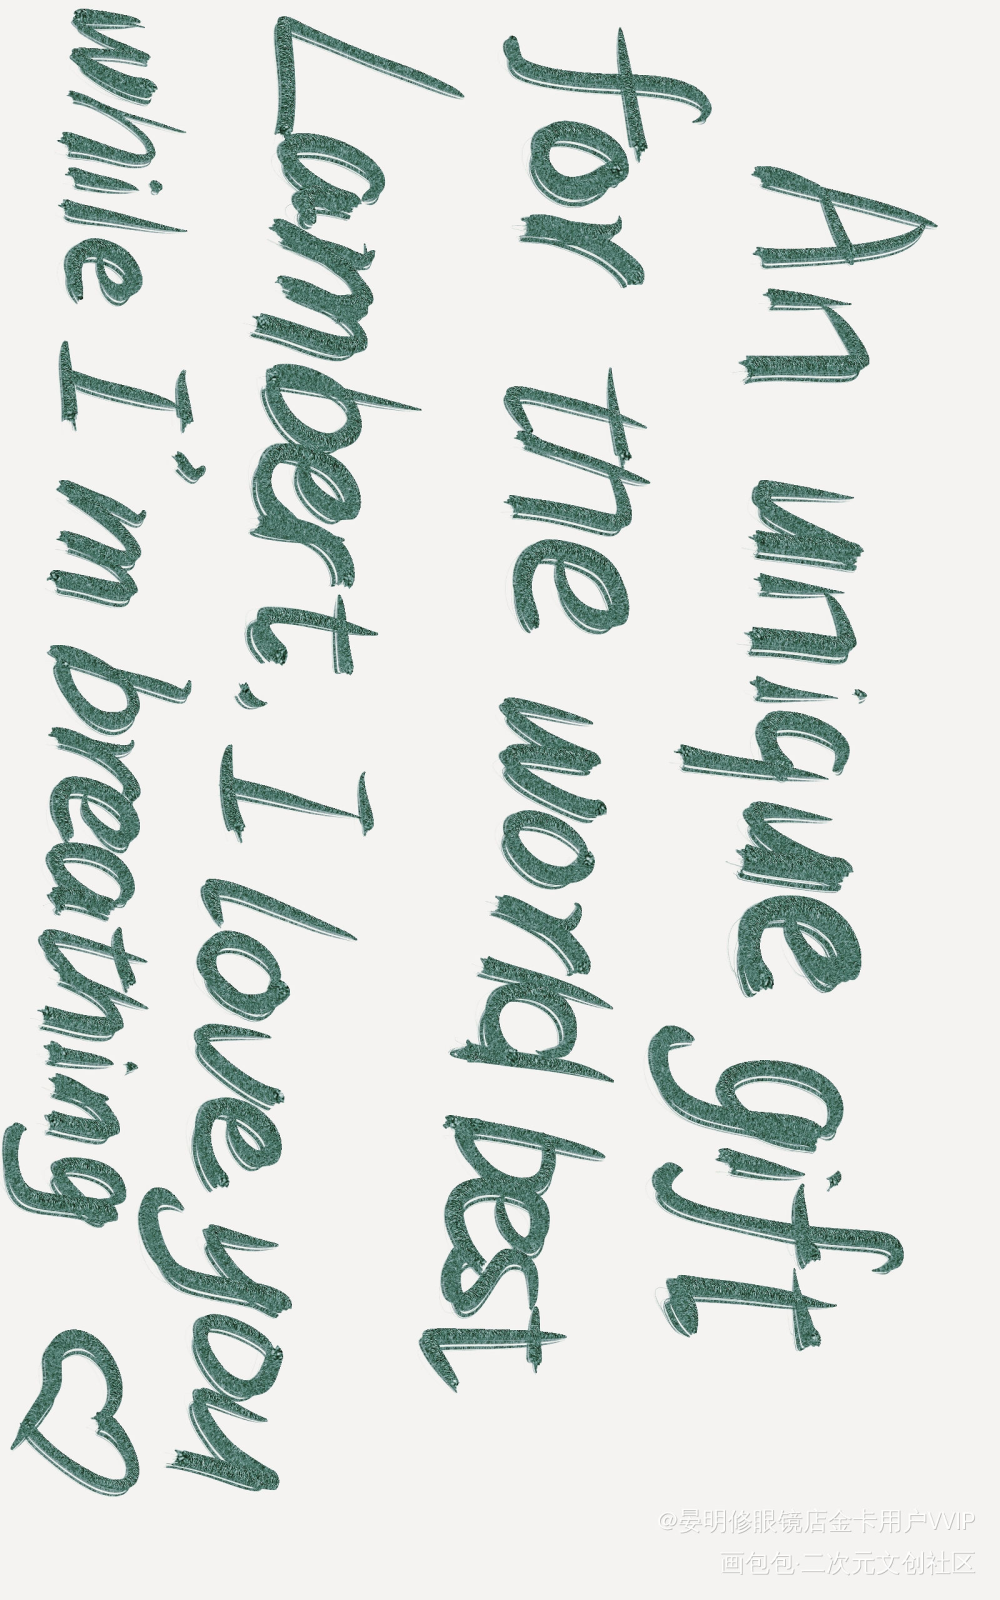 An unique gift
for the world best
Lambert, I love you
while I'm breathing
@晏明修眼镜店金卡用户VVIP
画包包·二次元文创社区